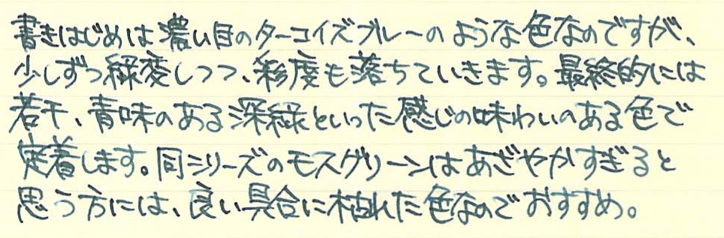 書きはじめは濃い目のターコイズブルーのような色なのですが、
少しずつ緑変しつつ、彩度も落ちていきます。最終的には
若干、青味のある深緑といった感じの味わいのある色で
定着します。同シリーズのモスグリーンはあざやかすぎると
思う方には、良い具合に枯れた色なのでおすすめ。